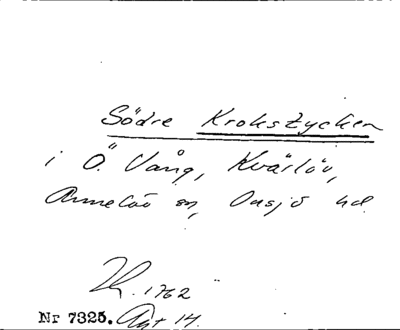 Södre Krokstycken
i Ö. Vång, Kvärlöv,
Annelöv sn, Onsjö hd
1762
Nr 7325. Akt 14.